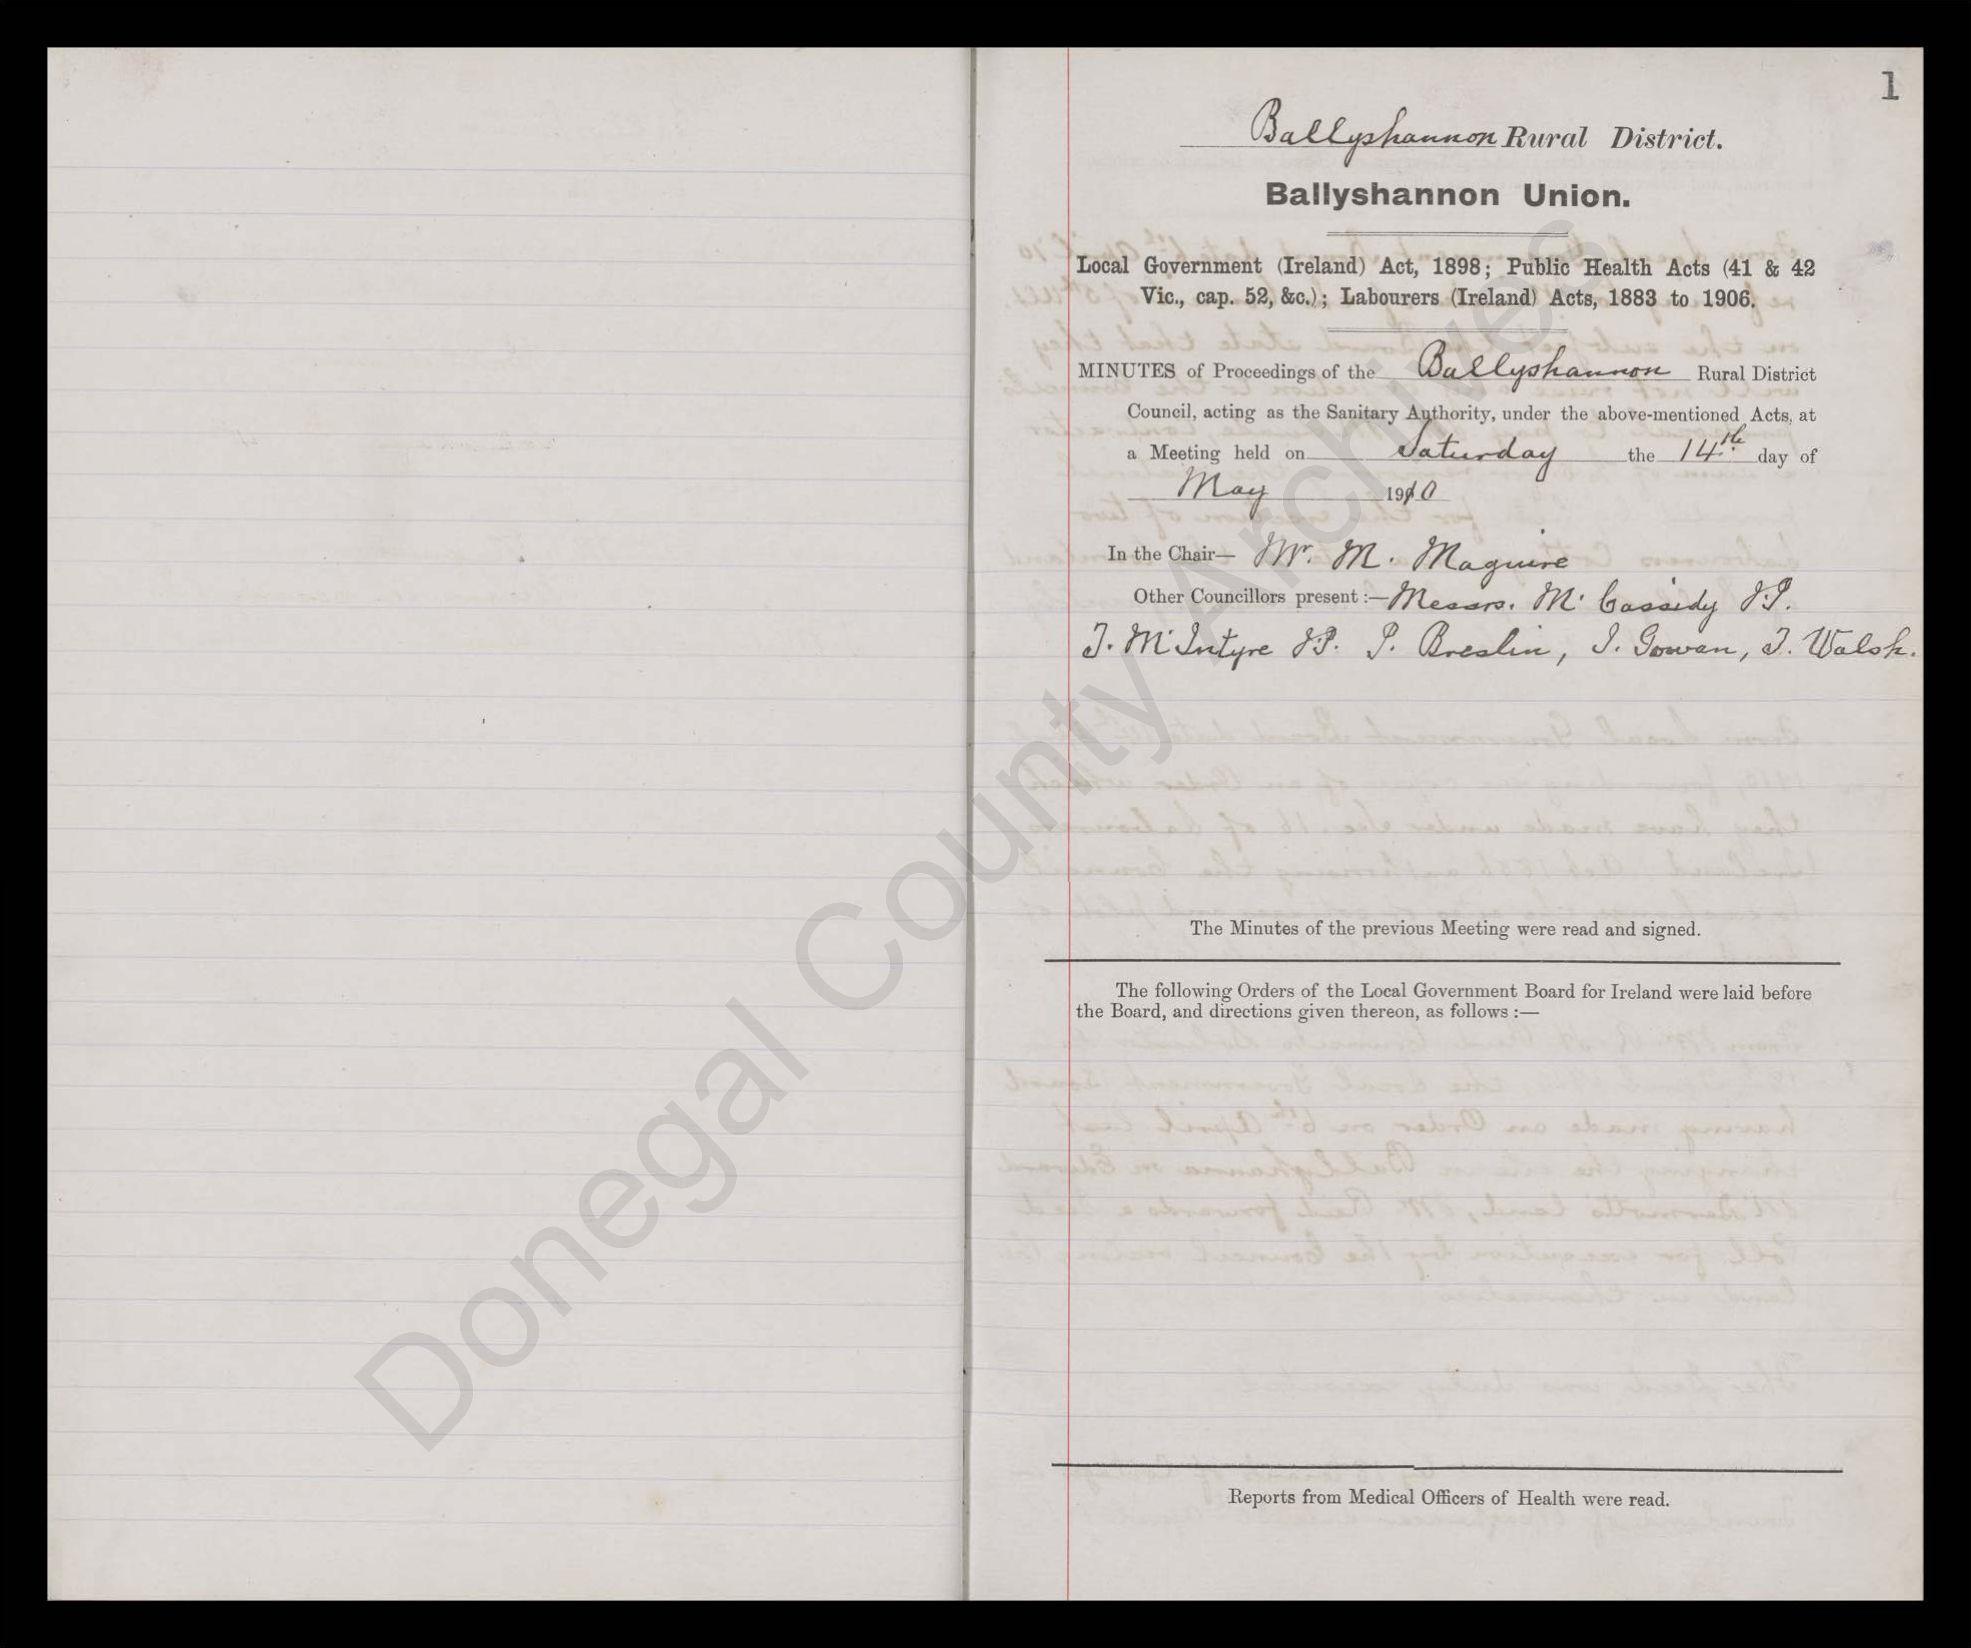 1
Ballyshannon Rural District.
Ballyshannon Union.
Local Government (Ireland) Act, 1898; Public Health Acts (41 & 42
Vic., cap. 52, &c.); Labourers (Ireland) Acts, 1883 to 1906.
MINUTES of Proceedings of the Ballyshannon Rural District
Council, acting as the Sanitary Authority, under the above-mentioned Acts, at
a Meeting held on Saturday the 14th day of
May 1910
In the Chair— Mr. M. Maguire
Other Councillors present :— Messrs. M. Cassidy J.P.
T. McIntyre J.P. P. Breslin, J. Gowan, T. Walsh.
The Minutes of the previous Meeting were read and signed.
The following Orders of the Local Government Board for Ireland were laid before
the Board, and directions given thereon, as follows :—
Reports from Medical Officers of Health were read.
Donegal County Archives